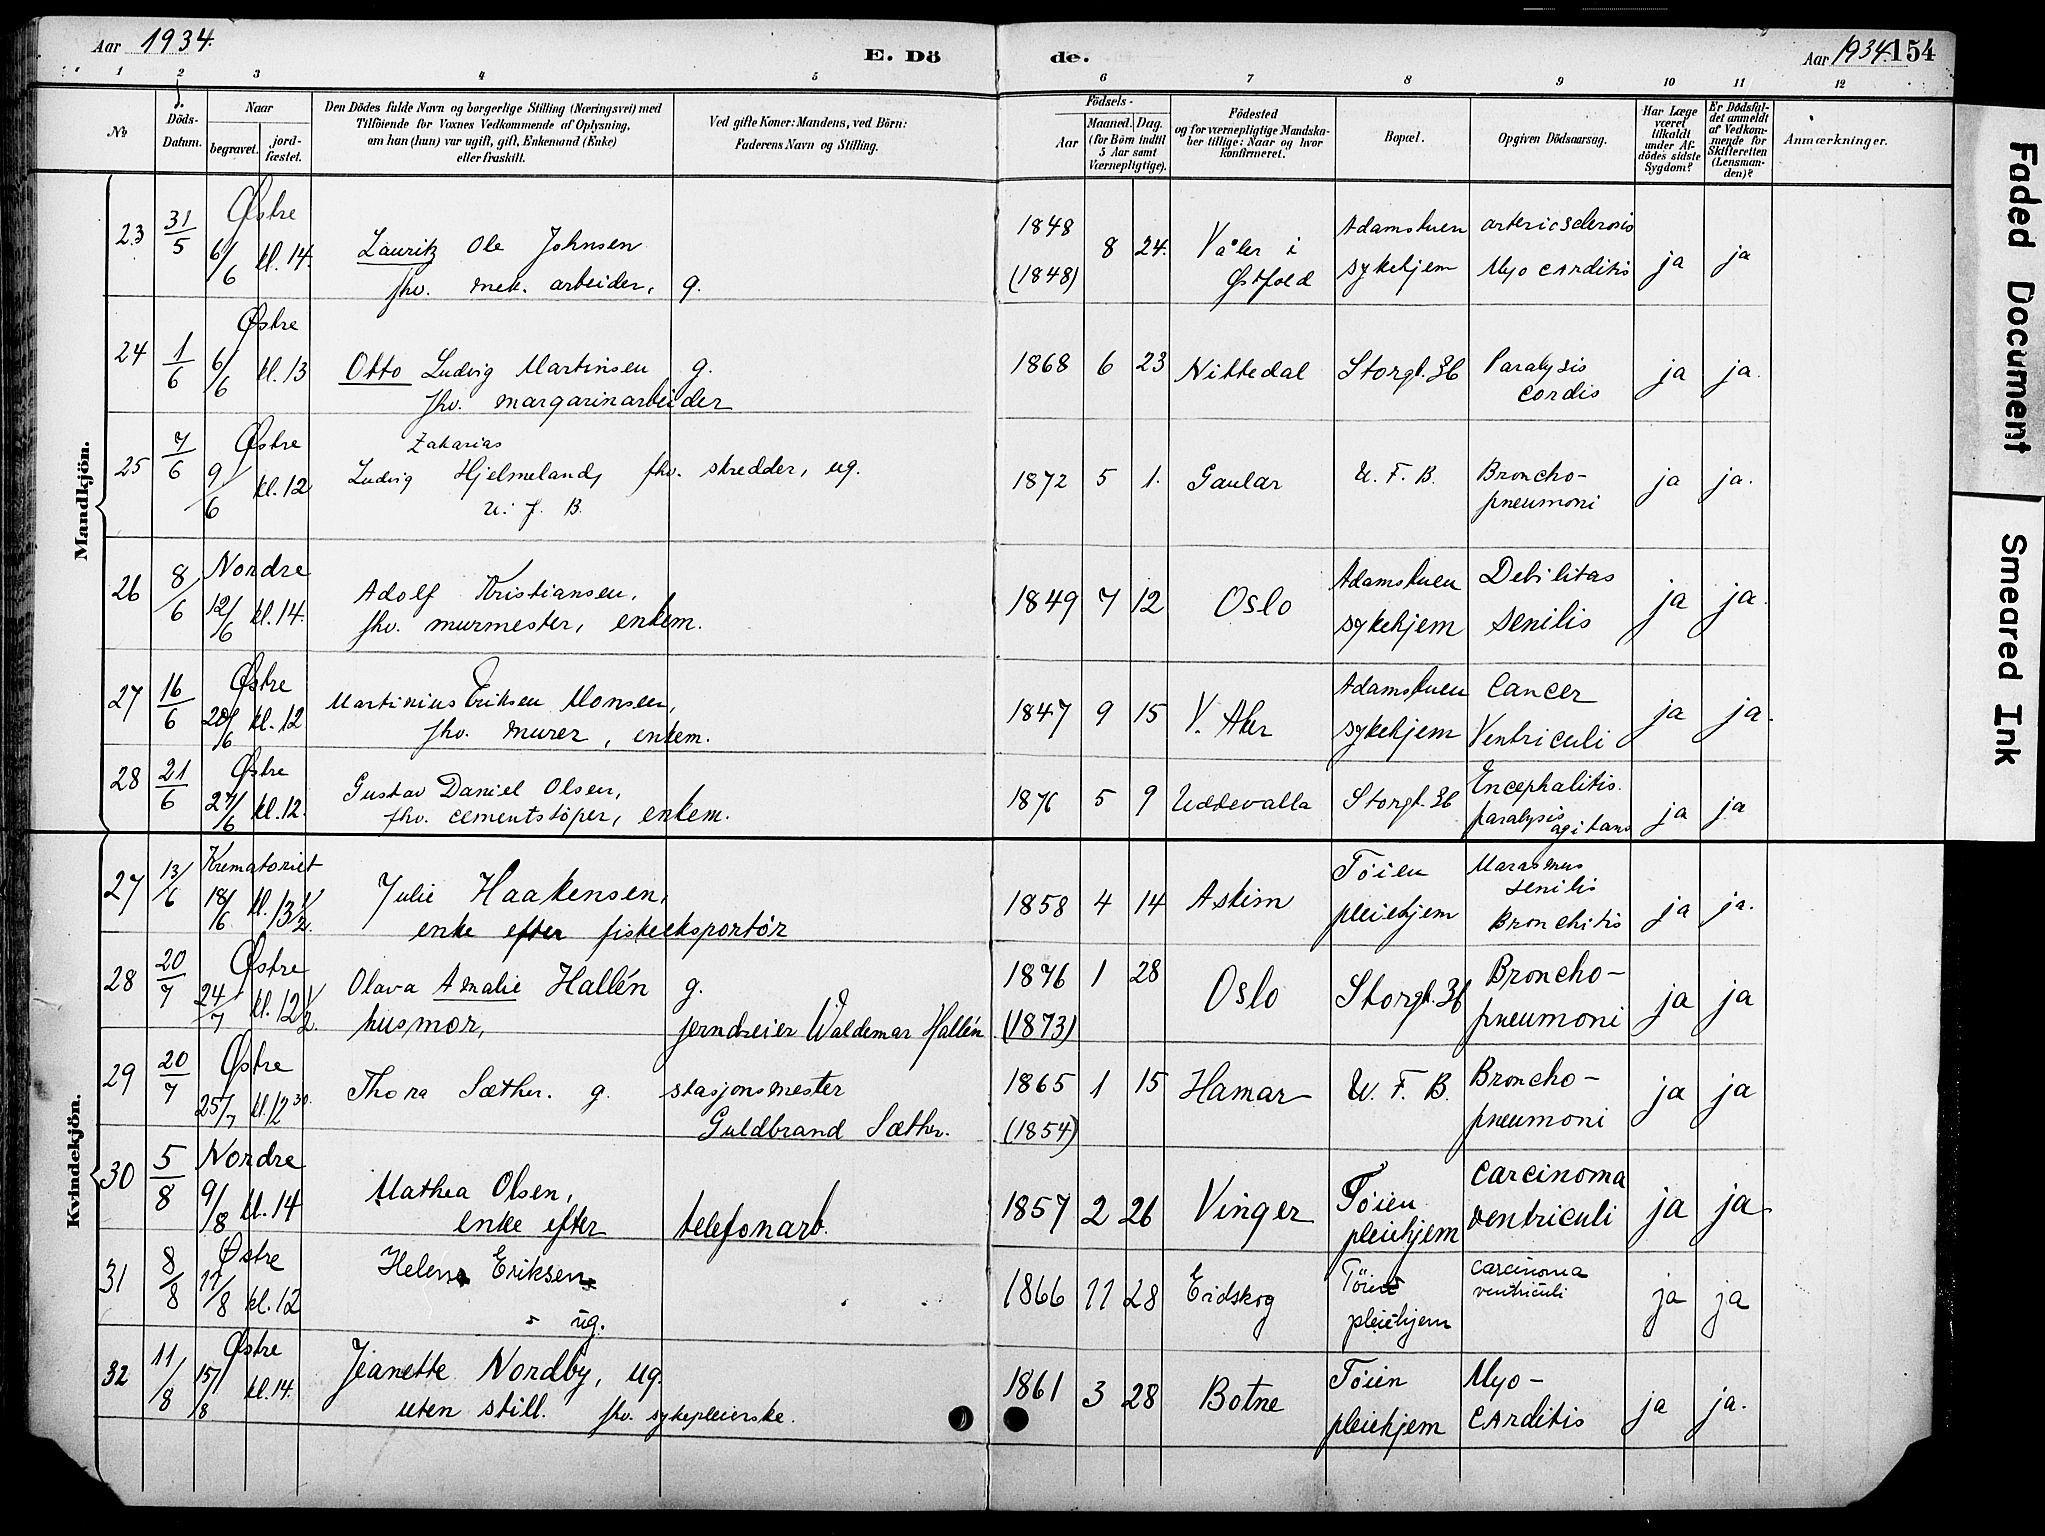 Aar 1934.
E. Dö
de.
Aar 1934. 154
1 2 3 4 5 6 7 8 9 10 11 12
No
Döds-
Datum.
Naar
begravet.
jord-
fæstet.
Den Dödes fulde Navn og borgerlige Stilling (Næringsvei) med
Tilföiende for Voxnes Vedkommende af Oplysning,
om han (hun) var ugift, gift, Enkemand (Enke)
eller fraskilt.
Ved gifte Koner: Mandens, ved Börn:
Faderens Navn og Stilling.
Födsels-
Aar
Maaned.
Dag.
(for Börn indtil
5 Aar samt
Værnepligtige).
Födested
og for værnepligtige Mandska-
ber tillige: Naar og hvor
konfirmeret.
Bopæl.
Opgiven Dödsaarsag.
Har Læge
været
tilkaldt
under Af-
dödes sidste
Sygdom?
Er Dödsfal-
det anmeldt
af Vedkom-
mende for
Skifteretten
(Lensman-
den)?
Anmærkninger.
Mandkjön.
23 31/5 Østre 6/6 kl. 14.
Lauritz Ole Johnsen
fhv. mek. arbeider, g.
1848 (1848) 8 24.
Våler i
Østfold
Adamstuen
sykehjem
arteriosclerosis
Myocarditis
ja ja
24 1/6 Østre 6/6 kl. 13
Otto Ludvig Martinsen g.
fhv. margarinarbeider
1868 6 23 Nittedal Storgt. 36
Paralysis
cordis
ja ja.
25 7/6 Østre 9/6 kl. 12
Zakarias
Ludvig Hjelmeland, fhv. skredder, ug.
U. F. B.
1872 5 1. Gaular U. F. B.
Broncho-
pneumoni
ja ja.
26 8/6 Nordre 12/6 kl. 14.
Adolf Kristiansen,
fhv. murmester, enkem.
1849 7 12 Oslo
Adamstuen
sykehjem
Debilitas
senilis
ja ja.
27 16/6 Østre 20/6 kl. 12
Martinius Eriksen Monsen,
fhv. murer, enkem.
1847 9 15 V. Aker
Adamstuen
sykehjem
Cancer
Ventriculi
ja ja.
28 21/6 Østre 27/6 kl. 12.
Gustav Daniel Olsen,
fhv. cementstöper, enkem.
1876 5 9 Uddevalla Storgt. 36
Encephalitis.
paralysis
agitans
ja ja
Kvindekjön.
27 13/6 Krematoriet 18/6 kl. 13 1/2
Julie Haakensen,
enke efter fiskeeksportör
1858 4 14 Askim
Töien
pleiehjem
Marasmus
senilis
Bronchitis
ja ja.
28 20/7 Østre 24/7 kl. 12 1/2
Olava Amalie Hallén g.
husmor, jerndreier Waldemar Hallén
1876 (1873) 1 28 Oslo Storgt. 36
Broncho-
pneumoni
ja ja
29 20/7 Østre 25/7 kl. 12 30.
Thora Sæther. g. stasjonsmester
Guldbrand Sæther.
1865 (1854) 1 15 Hamar U. F. B.
Broncho-
pneumoni
ja ja
30 5/8 Nordre 9/8 kl. 14
Mathea Olsen,
enke efter telefonarb.
1857 2 26 Vinger
Töien
pleiehjem
Carcinoma
ventriculi
ja ja
31 8/8 Østre 11/8 kl. 12
Helena Eriksen
ug.
1866 11 28 Eidskog
Töien
pleiehjem
Carcinoma
ventriculi
ja ja
32 11/8 Østre 15/8 kl. 14.
Jeanette Nordby, ug.
uten still. fhv. sykepleierske.
1861 3 28 Botne
Töien
pleiehjem
Myo-
carditis
ja ja.
Faded Document
Smeared Ink